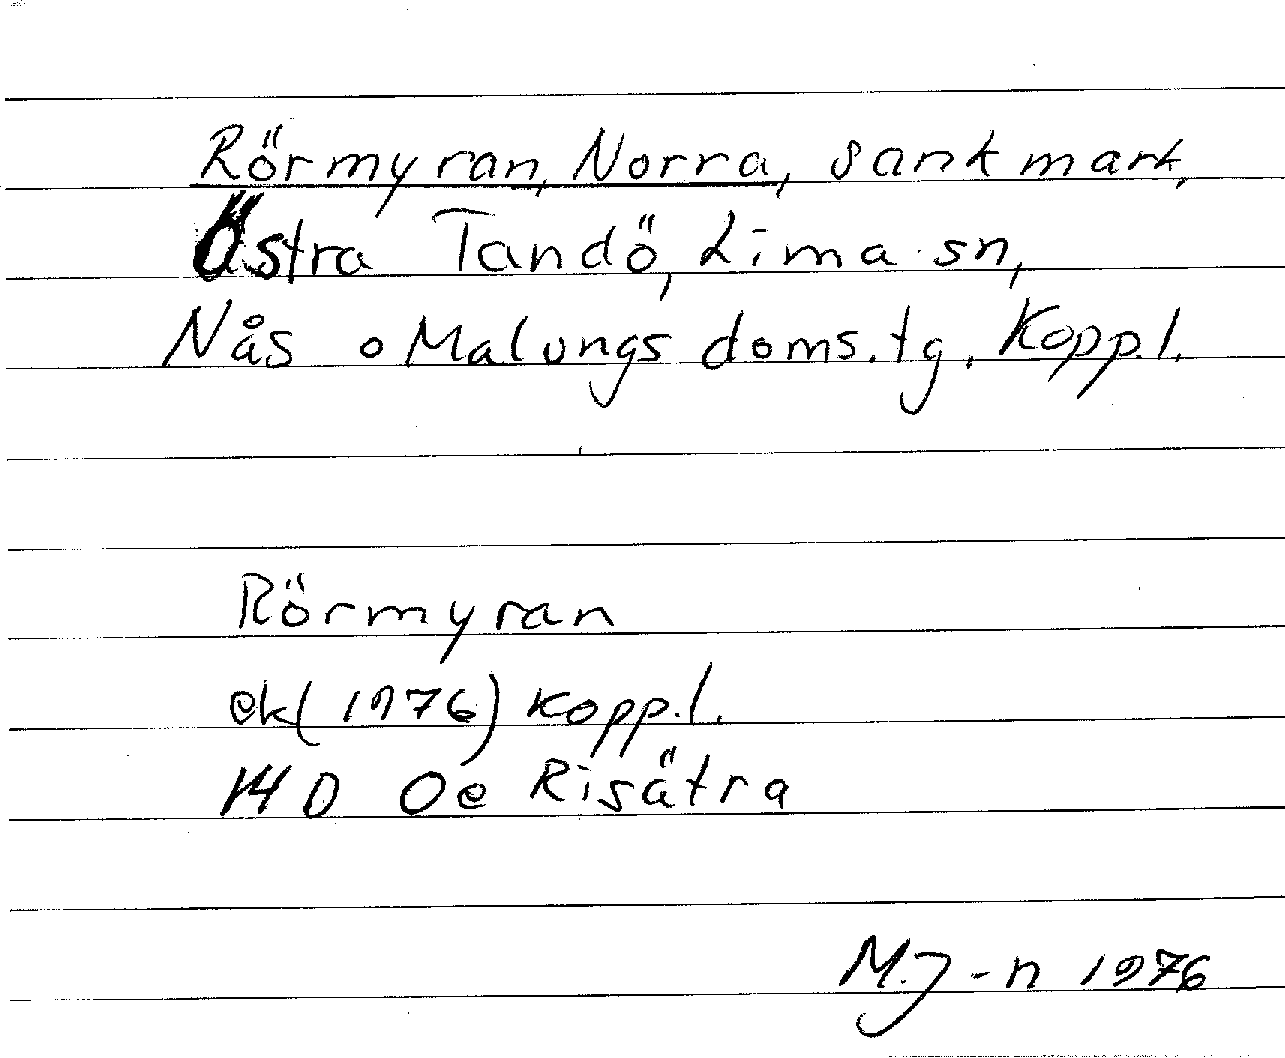 Rörmyran, Norra, sankmark,
Östra Tandö, Lima sn,
Nås o Malungs doms.tg. Kopp.l.
Rörmyran
ek(1976) Kopp.l.
14D 0e Risätra
M.J-n 1976